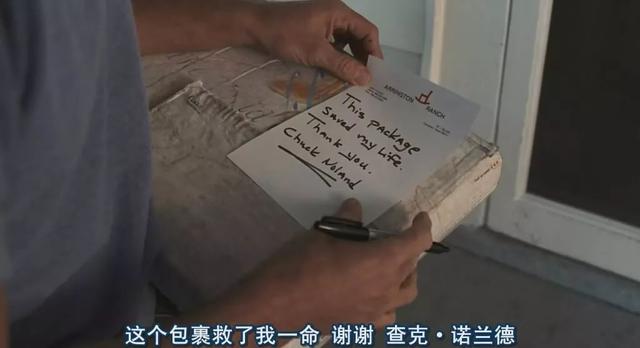 ARRINGTON RANCH
This PACKAGE
saved my life.
Thank you.
Chuck Noland
这个包裹救了我一命 谢谢 查克·诺兰德